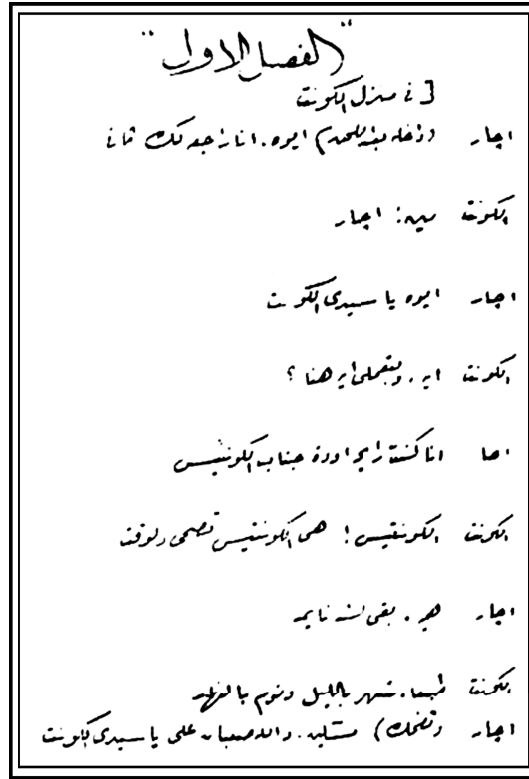 "الفصل الاول"
[ فى منزل الكونت
اجار (داخله بعد اللحن) ايوه. انا راجعه لك تانى
الكونت مين: اجار
اجار ايوه يا سيدى الكونت
الكونت ايه. وبتعملى ايه هنا ؟
اجا انا كنت رايحه اودة جناب الكونتيس
الكونت الكونتيس! هى الكونتيس تصحى دلوقت
اجار هى. بقى لسه نايمه
الكونت طبعا. سهر بالليل ونوم بالنهار
اجار (تضحك) مسكين. والله صعبان على يا سيدى الكونت